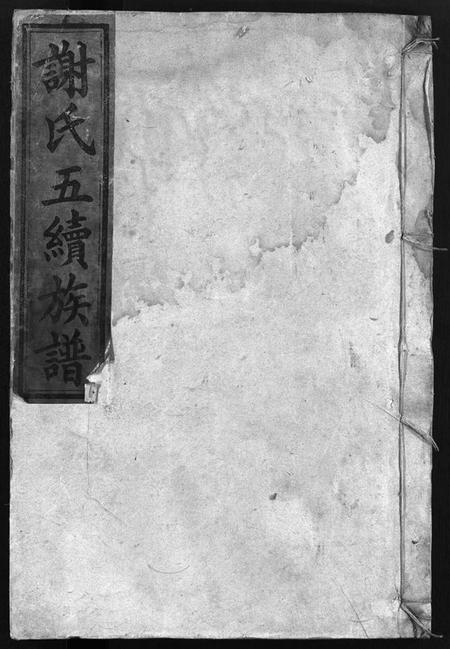 謝氏五續族譜